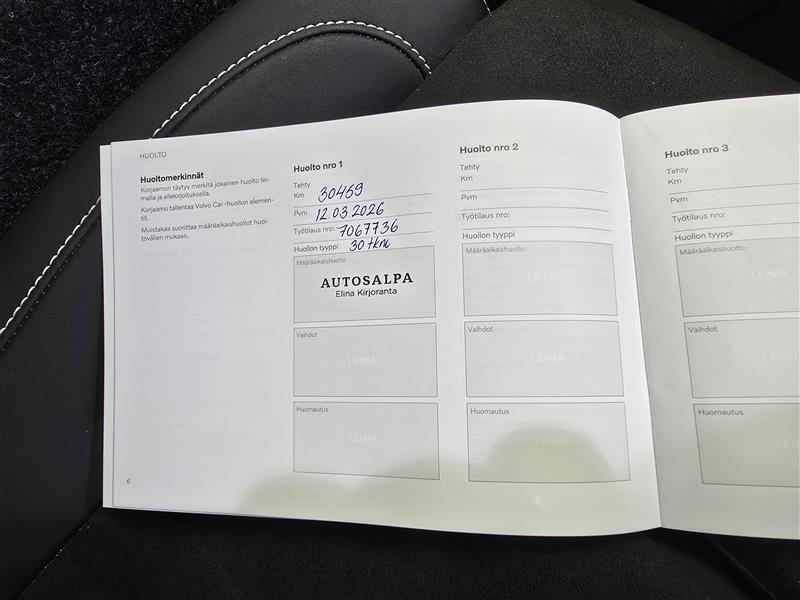 HUOLTO
Huoltomerkinnät
Korjaamon täytyy merkitä jokainen huolto lei-
malla ja allekirjoituksella.
Korjaamo tallentaa Volvo Car -huollon elemen-
tit.
Muistakaa suorittaa määräaikaishuollot huol-
tovälien mukaan.
6
Huolto nro 1
Tehty
Km 30459
Pvm 12.03.2026
Työtilaus nro: 7067736
Huollon tyyppi 30 tkm
Määräaikaishuolto
AUTOSALPA
Elina Kirjoranta
Vaihdot
LEIMA
Huomautus
LEIMA
Huolto nro 2
Tehty
Km
Pvm
Työtilaus nro:
Huollon tyyppi
Määräaikaishuolto
LEIMA
Vaihdot
LEIMA
Huomautus
LEIMA
Huolto nro 3
Tehty
Km
Pvm
Työtilaus nro:
Huollon tyyppi
Määräaikaishuolto
LEIMA
Vaihdot
LEIMA
Huomautus